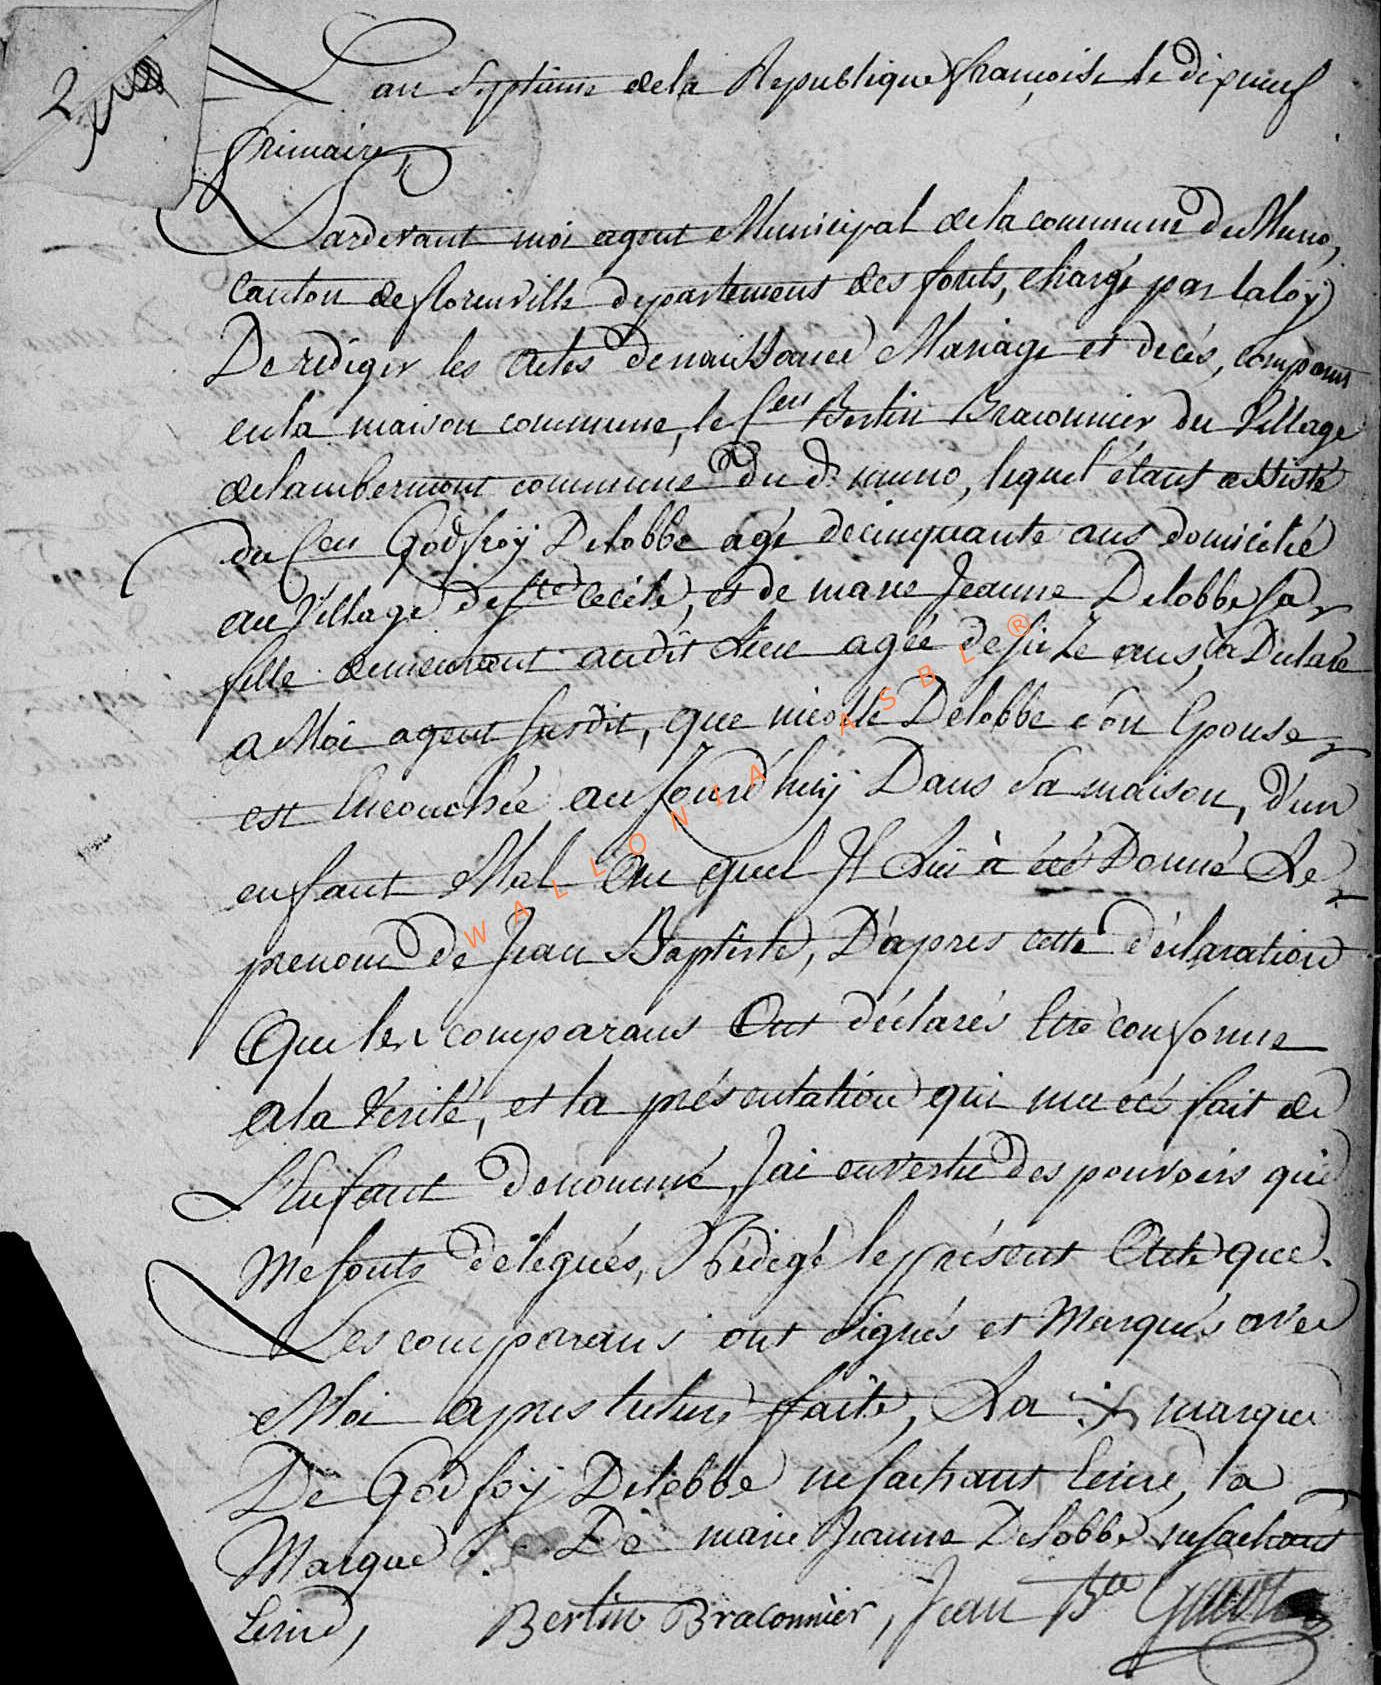 2
L'an Septieme dela Republique françoise le dixneuf
frimaire,
Pardevant moi agent Municipal dela commune de Muno,
Canton de florenville departement des forets, chargé par laloy
De rédiger les actes denaissance Mariage et decès, comparu
enla maison commune, le Cen Bertin Braconnier du Village
delambermont commune du dt muno, lequel étant assisté
du Cen Godfroÿ Delobbe agé decinquante ans domicilié
au Village de Ste Cecile, et de marie Jeanne Delobbe sa
fille demeurant audit Lieu agée de seize ans, a Declaré
a Moi agent susdit, que nicolle Delobbe son Epouse
est Encouchée aujourd'huÿ Dans sa maison, d'un
enfant Mal Au quel Il Lui à été Donné Le
prenom de Jean Baptiste, D'apres cette déclaration
Que les comparans Ont déclarés Etre conforme
ala Vérité, et la présentation qui ma été fait de
L'Enfant denommé, J'ai envertu des pouvoirs qui
Me sonts délégués, Rédigé le présent Acte que
Les comparans ont signés et Marqués avec
Moi apres lecture faite, La marque
De Godfoÿ Delobbe nesachant Ecrire, la
Marque De marie Jeanne Delobbe nesachant
Ecrire, Bertin Braconnier, Jean Bte
WALLONIA ASBL ®